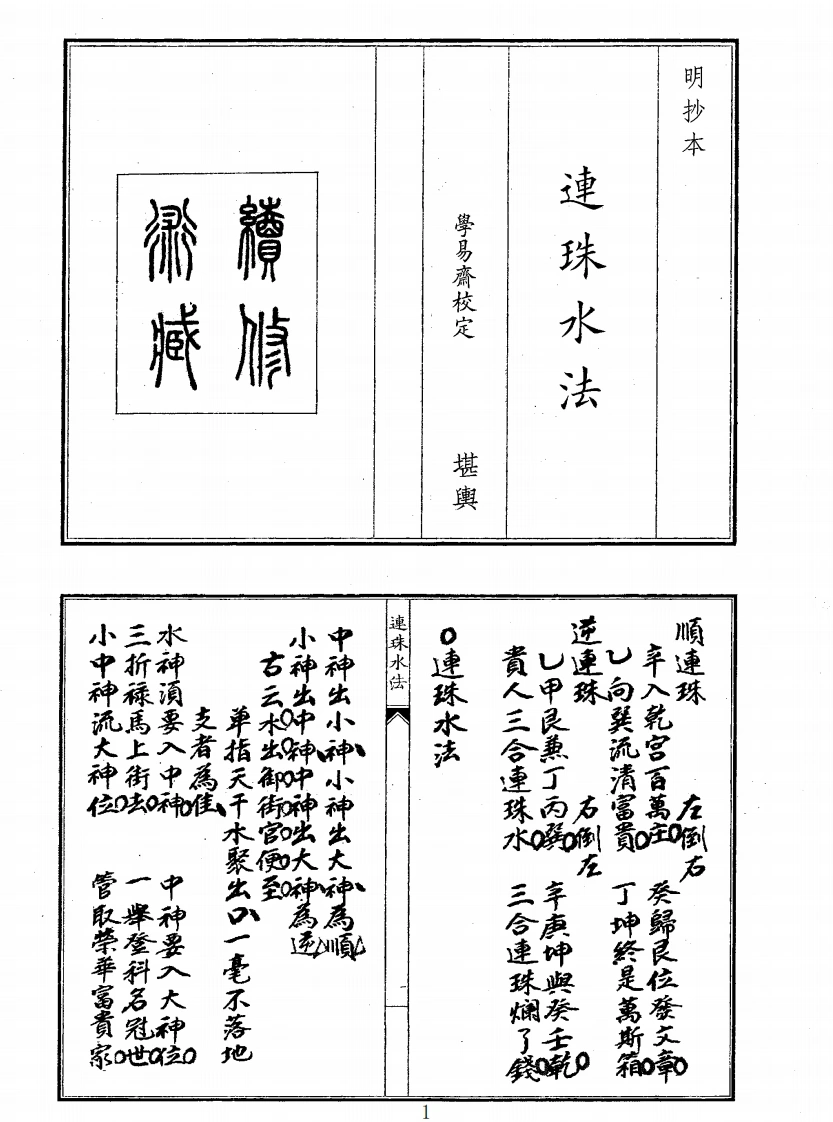 明抄本
連珠水法
學易齋校定　堪輿
續修
術藏
○連珠水法
順連珠　左倒右
辛入乾宮百萬庄○癸歸艮位發文章○
乙向巽流清富貴○丁坤終是萬斯箱○
逆連珠　右倒左
乙甲艮兼丁丙巽○辛庚坤與癸壬乾○
貴人三合連珠水○三合連珠爛了錢○
連珠水法
中神出小神、小神出大神、為順
小神出中神、中神出大神、為逆
古云水出御街官便至
單指天干水聚出口、一毫不落地
支者為佳、
水神須要入中神○中神要入大神位○
三折祿馬上街去○一舉登科名冠世○
小中神流大神位○管取榮華富貴家○
1